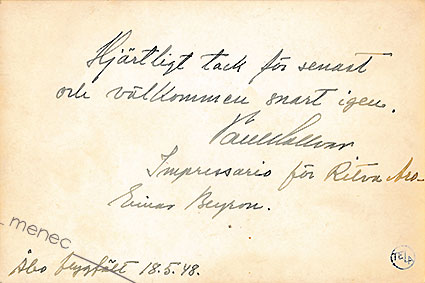 Hjärtligt tack för senast
och välkommen snart igen.
Impressario för Ritva Aro-
Einar Beyron.
menec
Åbo flygfält 18.5.48.